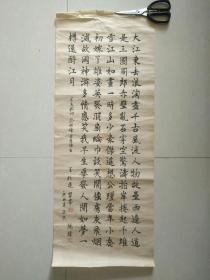 大江東去浪淘盡千古風流人物故壘西邊人道
是三國周郎赤壁亂石穿空驚濤拍岸捲起千堆
雪江山如畫一時多少豪傑遙想公瑾當年小喬
初嫁了雄姿英發羽扇綸巾談笑間檣櫓灰飛煙
滅故國神游多情應笑我早生華髮人間如夢一
樽還酹江月